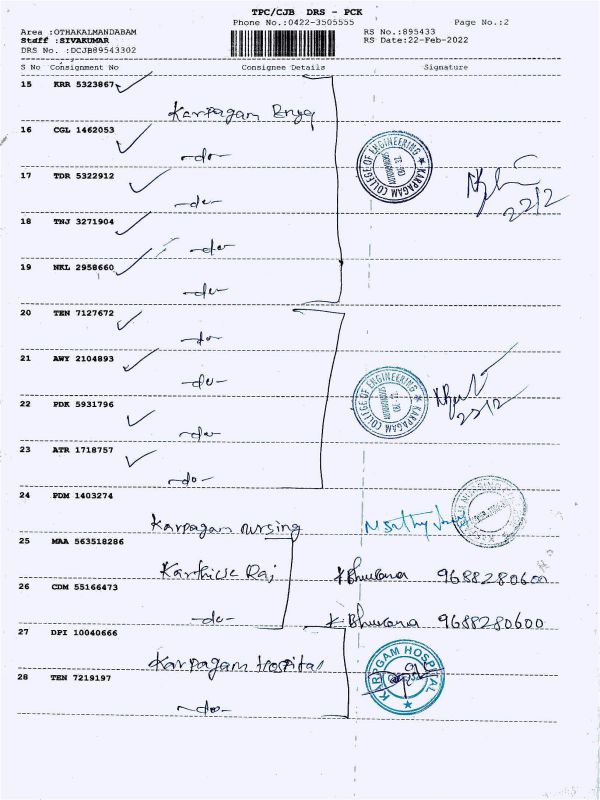 TPC/CJB DRS - PCK
Phone No.:0422-3505555 Page No.:2
Area :OTHAKALMANDABAM RS No.:895433
Staff :SIVAKUMAR RS Date:22-Feb-2022
DRS No. :DCJB89543302
S No Consignment No Consignee Details Signature
15 KRR 5323867
Karpagam Engg
16 CGL 1462053
-do-
KARPAGAM COLLEGE OF ENGINEERING
17 TDR 5322912
-do-
22/2
18 TNJ 3271904
-do-
19 NKL 2958660
-do-
20 TEN 7127672
-do-
21 AWY 2104893
-do-
KARPAGAM COLLEGE OF ENGINEERING
22/2
22 PDK 5931796
-do-
23 ATR 1718757
-do-
24 PDM 1403274
Karpagam nursing
25 MAA 563518286
Karthick Raj K Bhuvana 9688280600
26 CDM 55166473
-do- K. Bhuvana 9688280600
27 DPI 10040666
Karpagam Hospital
KARPAGAM HOSPITAL
28 TEN 7219197
-do-